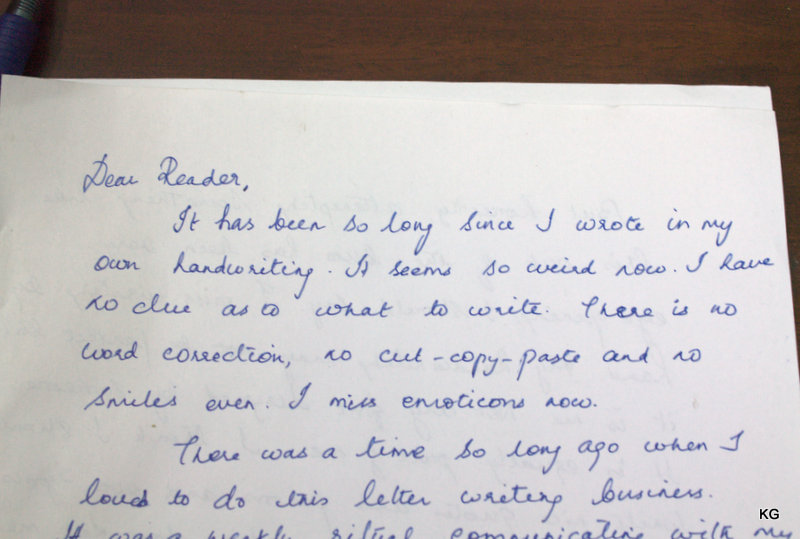 Dear Reader,
It has been so long since I wrote in my
own handwriting. It seems so weird now. I have
no clue as to what to write. There is no
word correction, no cut-copy-paste and no
smiles even. I miss emoticons now.
There was a time so long ago when I
loved to do this letter writing business.
It was a weekly ritual communicating with my
KG